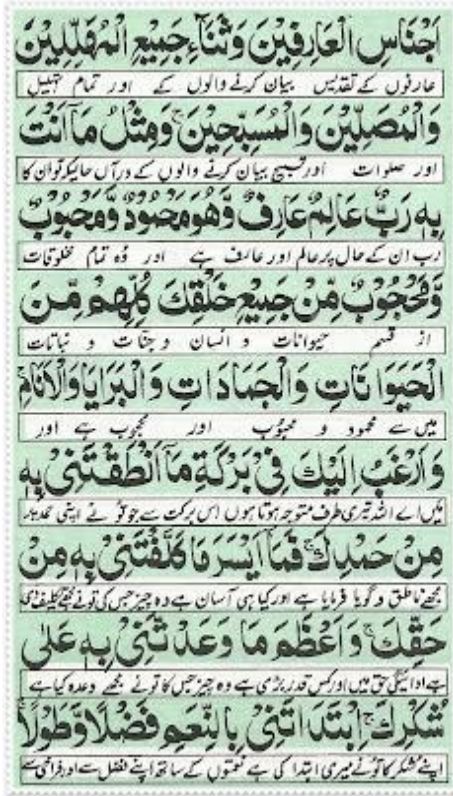 اَجْنَاسِ الْعَارِفِيْنَ وَثَنَاءِ جَمِيْعِ الْمُهَلِّلِيْنَ
عارفوں کے تقدیس بیان کرنے والوں کے اور تمام تہلیل
وَالْمُصَلِّيْنَ وَالْمُسَبِّحِيْنَ ۚ وَمِثْلُ مَآ اَنْتَ
اور صلوات اور تسبیح بیان کرنے والوں کے درآں حالیکہ تو ان کا
بِهٖ رَبٌّ عَالِمٌ عَارِفٌ وَّهُوَ مَحْمُوْدٌ وَّمَحْبُوْبٌ
رب ان کے حال پر عالم اور عارف ہے اور وہ تمام مخلوقات
وَّمَحْجُوْبٌ مِّنْ جَمِيْعِ خَلْقِكَ كُلِّهِمْ مِّنَ
از قسم حیوانات و انسان و جنات و نباتات
الْحَيَوَانَاتِ وَالْجَمَادَاتِ وَالْبَرَايَا وَالْاَنَامِ
میں سے محمود و محبوب اور محجوب ہے اور
وَاَرْغَبُ اِلَيْكَ فِيْ بَرَكَةِ مَآ اَنْطَقْتَنِيْ بِهٖ
میں اے اللہ تیری طرف متوجہ ہوتا ہوں اس برکت سے جو تو نے اپنی حمد پر
مِنْ حَمْدِكَ ۚ فَمَآ اَيْسَرَ مَا كَلَّفْتَنِيْ بِهٖ مِنْ
مجھے ناطق و گویا فرمایا ہے اور کیا ہی آسان ہے وہ چیز جس کی تو نے مجھے تکلیف دی
حَقِّكَ ۚ وَاَعْظَمَ مَا وَعَدْتَّنِيْ بِهٖ عَلٰى
ہے ادائیگی حق میں اور کس قدر بڑی ہے وہ چیز جس کا تو نے مجھے وعدہ کیا ہے
شُكْرِكَ ۚ اِبْتَدَاْتَنِيْ بِالنِّعَمِ فَضْلًا وَّطَوْلًا
اپنے شکر کا تو نے میری ابتدا کی ہے نعمتوں کے ساتھ اپنے فضل سے اور فراخی سے